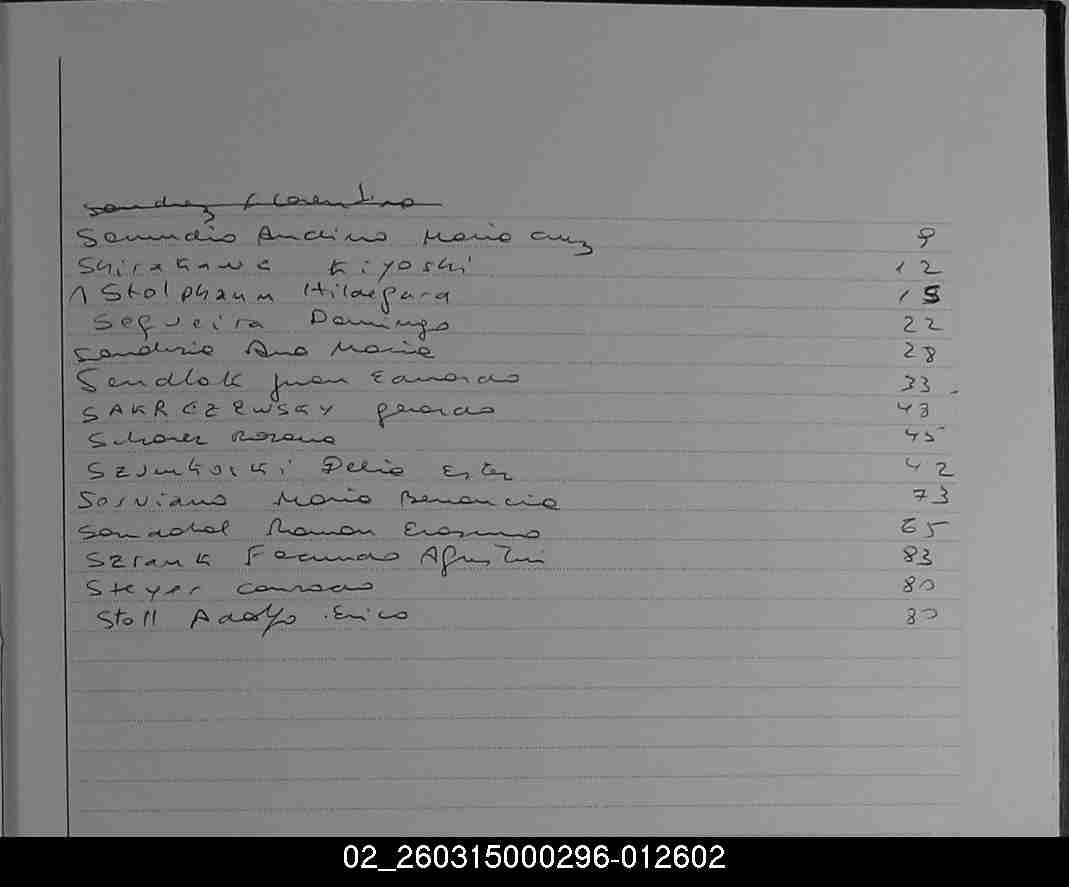 Sanchez Florentino
Samudio Andino Maria Cruz 9
Shirakawa Kiyoshi 12
1 Stolphann Hildegard 15
Segueira Domingo 22
Sandizio Ana Maria 28
Sendlak Juan Eduardo 33
SAKRCZEWSKY Gerardo 43
Rozana 45
Delia Ester 42
Maria Benancia 73
Sandobal Ramon Erasmo 65
Szrank Facundo Agustin 83
Steyer Conrado 80
Stoll Adolfo Erico 80
02_260315000296-012602